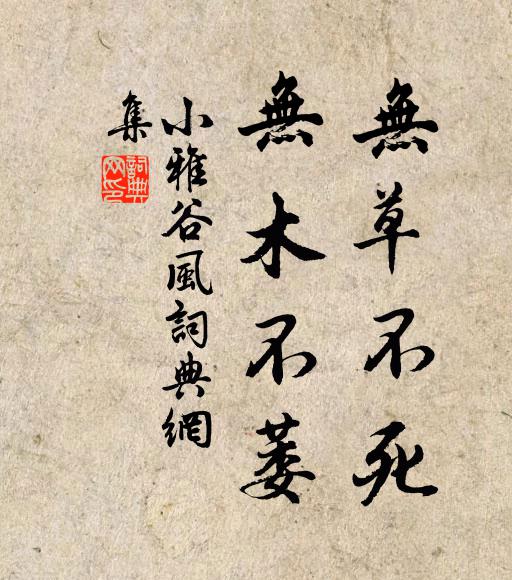 無草不死
無木不萎
小雅谷風詞典網
集
詞典
网印